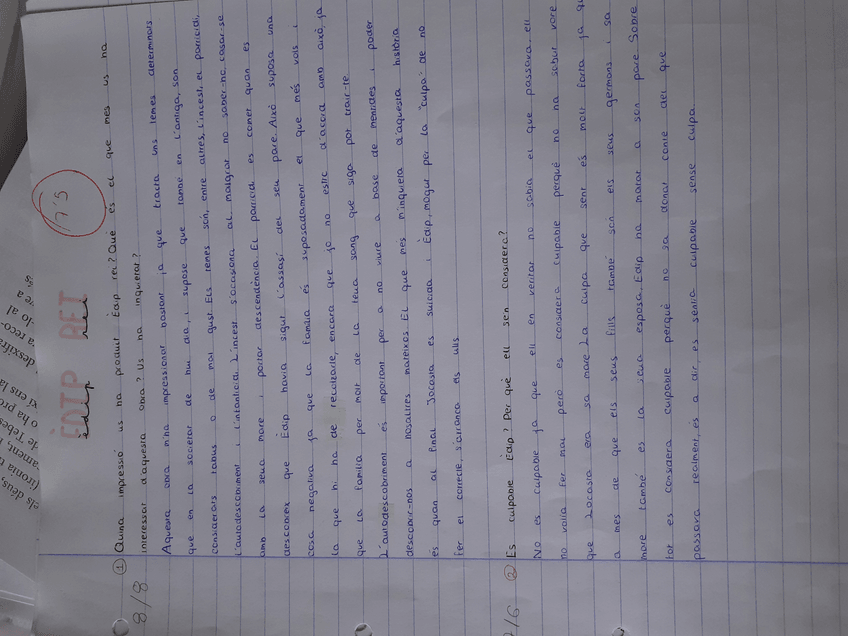 ÈDIP REI
èdip rei
17,5
① Quina impressió us ha produït Èdip rei? Què és el que més us ha
interessat d'aquesta obra? Us ha inquietat?
8/8
Aquesta obra m'ha impressionat bastant ja que tracta uns temes determinats
que en la societat de hui dia, i supose que també en l'antiga, són
considerats tabús o de mal gust. Els temes són, entre altres, l'incest, el parricidi,
l'autodescobriment i l'infanticidi. L'incest s'ocasiona al malgrat no saber-ho, casar-se
amb la seua mare i portar descendència. El parricidi es comet quan es
descobreix que Èdip havia sigut l'assassí del seu pare. Això suposa una
cosa negativa ja que la família és suposadament el que més vols i
la que hi ha de recolzarte, encara que jo no estic d'acord amb això, ja
que la família per molt de la teua sang que siga pot trair-te.
L'autodescobriment és important per a no viure a base de mentides i poder
descobrir-nos a nosaltres mateixos. El que més m'inquieta d'aquesta història
és quan al final Jocasta es suicida i Èdip, mogut per la "culpa" de no
fer el correcte, s'arranca els ulls.
/6
② Es culpable Èdip? Per què ell s'en considera?
No es culpable ja que ell en veritat no sabia el que passava, ell
no volia fer mal però es considera culpable perquè no ha sabut vore
que Jocasta era sa mare. La culpa que sent és molt forta ja q
a més de que els seus fills també són els seus germans i sa
mare també es la seua esposa, Èdip ha matat a son pare. Sobre
tot es considera culpable perquè no sa donat conte del que
passava realment, és a dir, es sentia culpable sense culpa.
els déus,
(ironia